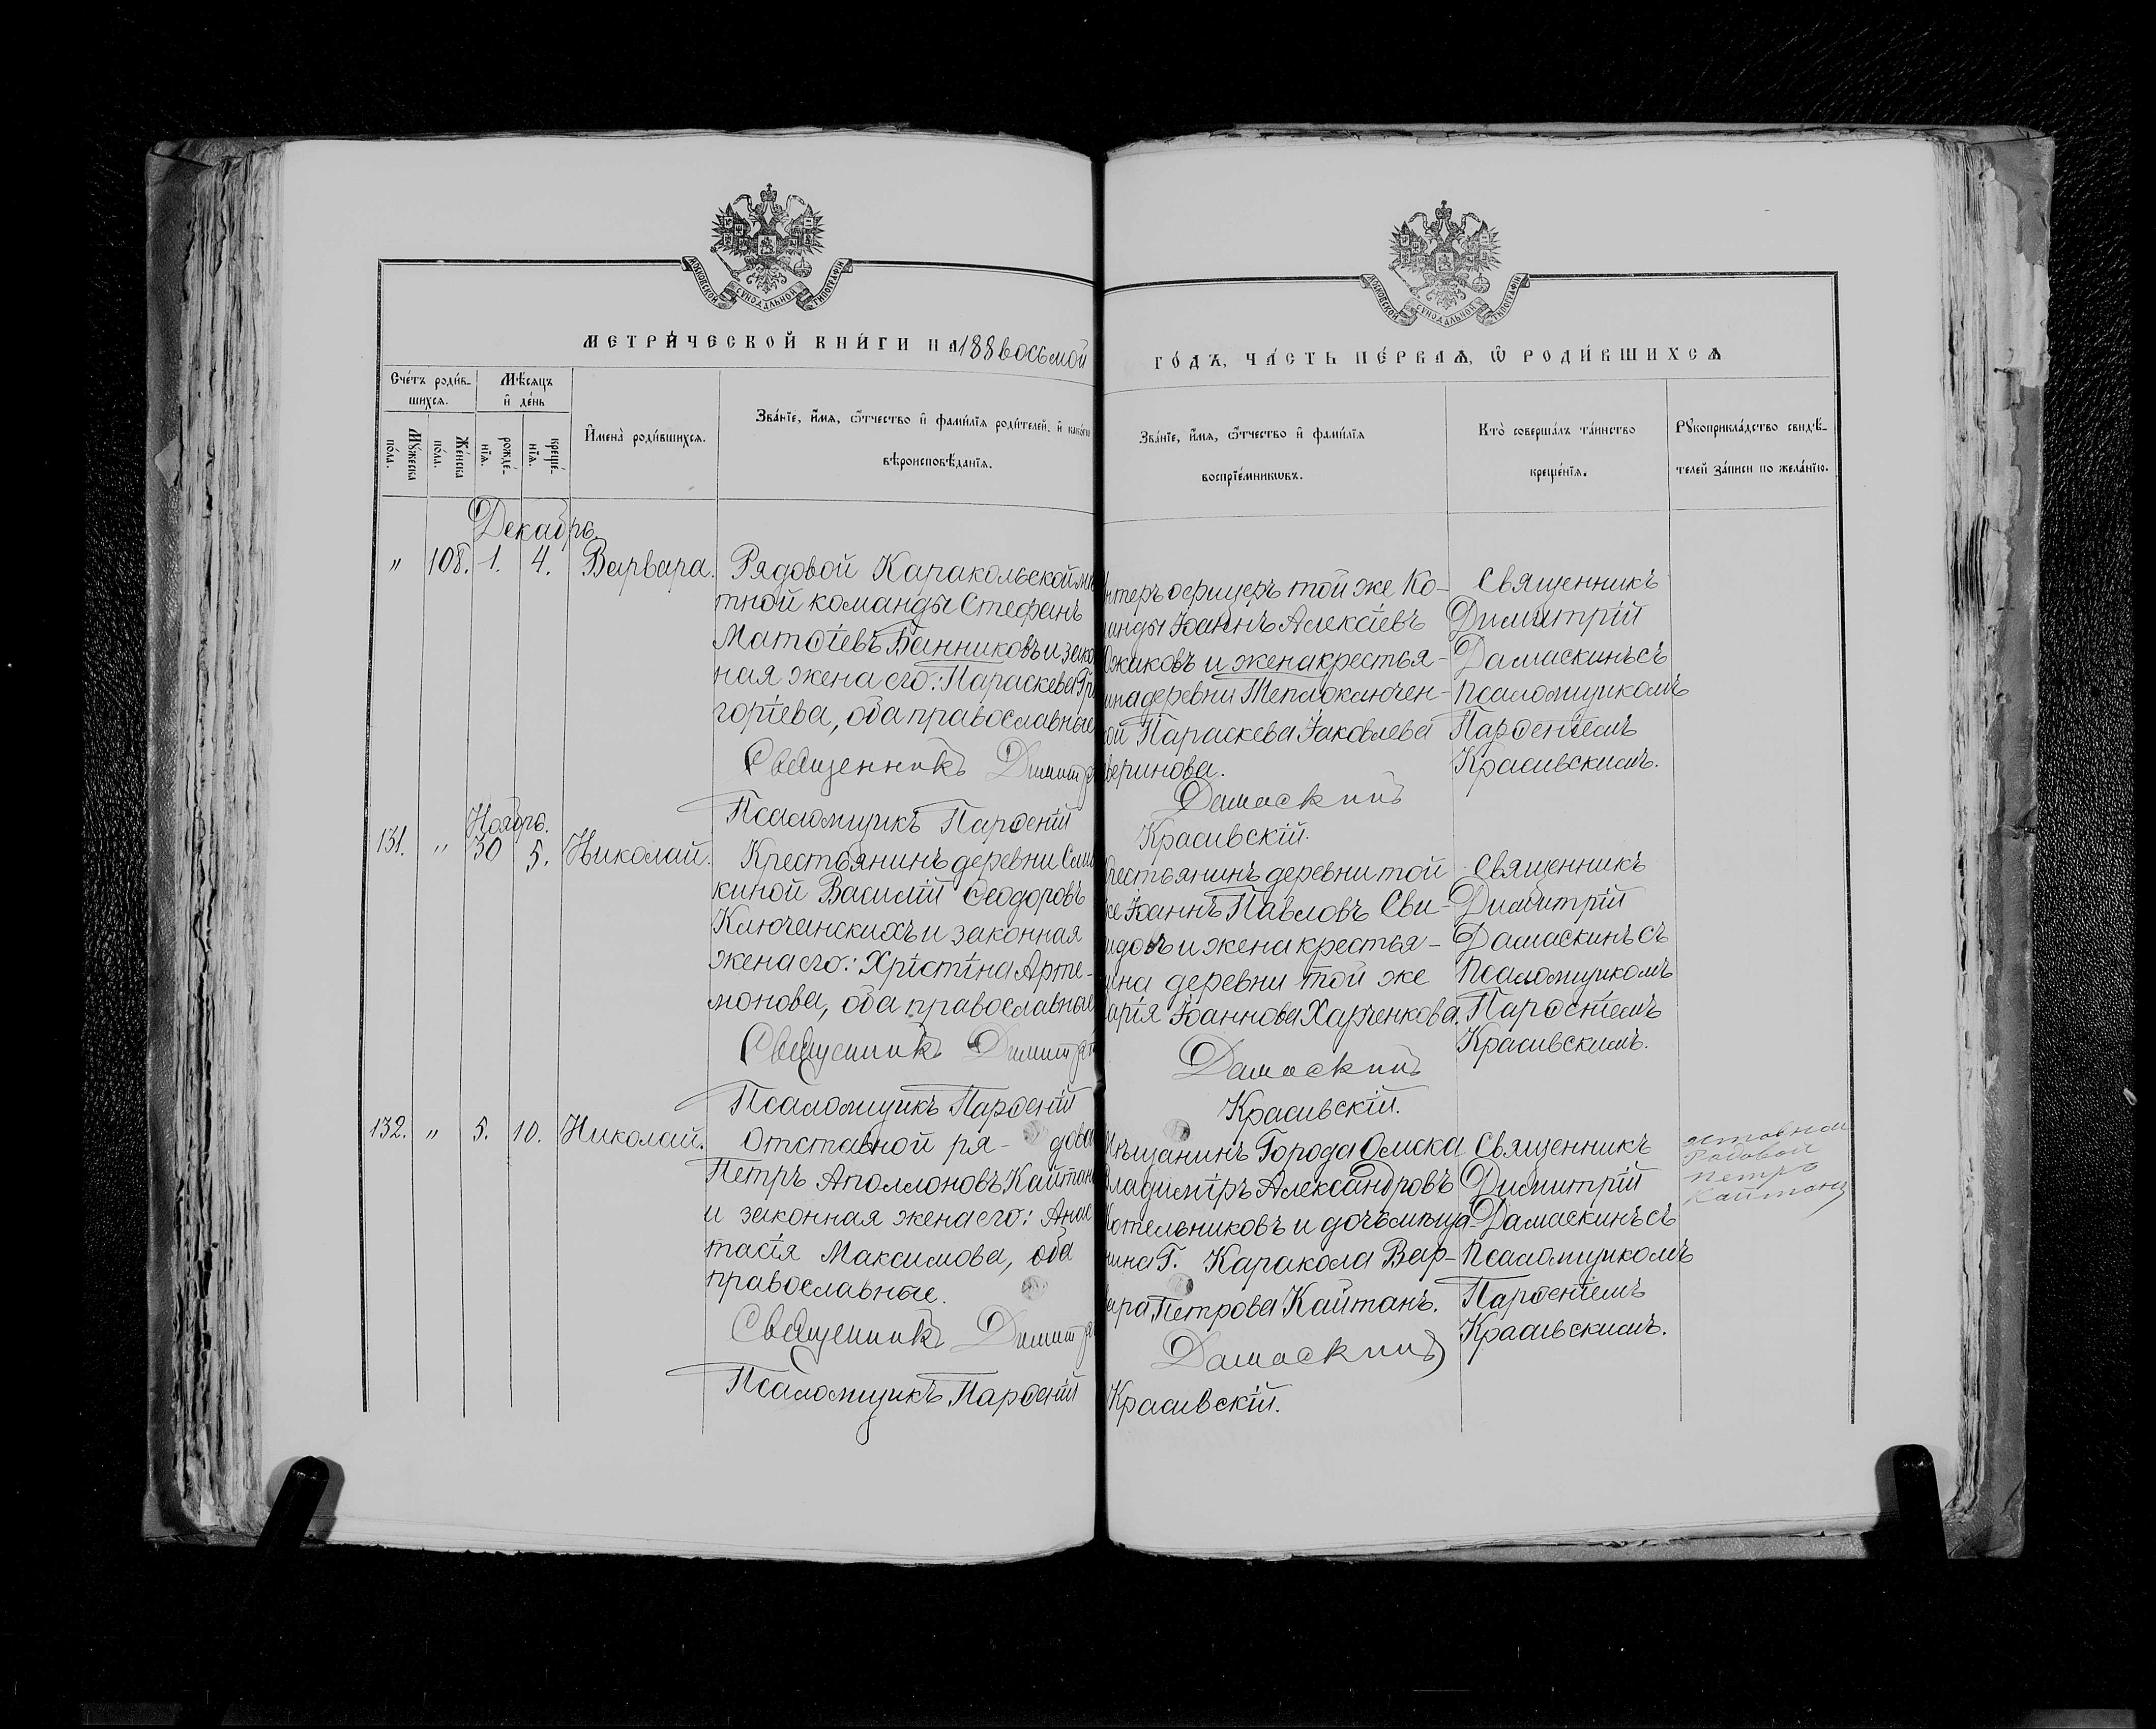 МОСКОВСКОЙ СѴНОДАЛЬНОЙ ТИПОГРАФІИ
МОСКОВСКОЙ СѴНОДАЛЬНОЙ ТИПОГРАФІИ
МЕТРИ́ЧЕСКОЙ КНИ́ГИ НА 188 восьмой
ГО́ДЪ, ЧА́СТЬ ПЕ́РВАѦ, Ѡ҆ РОДИ́ВШИХСѦ
Сче́тъ роди́в-
шихсѧ.
Мѣ́сяцъ
и҆ де́нь
Мꙋ́жеска
по́ла.
Же́нска
по́ла.
рожде́-
нїѧ.
креще́-
нїѧ.
И҆мена̀ роди́вшихсѧ.
Зва́нїе, и҆́мѧ, ѻ҆́тчество и҆ фами́лїѧ роди́телей, и҆ како́гѡ
вѣроисповѣ́данїѧ.
Зва́нїе, и҆́мѧ, ѻ҆́тчество и҆ фами́лїѧ
воспрїе́мникѡвъ.
Кто̀ соверша́лъ та́инство
креще́нїѧ.
Рꙋкоприкла́дство свидѣ́-
телей за́писи по жела́нїю.
Декабрь.
" 108. 1. 4. Варвара.
Рядовой Каракольской мѣ
тной команды Стефанъ
Матѳіевъ Банниковъ и зако
ная жена его: Параскева Гри
горіева, оба православные
Священникъ Димитрі
Псаломщикъ Парѳеній
нтеръ офицеръ той же Ко-
анды Іоаннъ Алексіевъ
жаковъ и жена крестья-
ина деревни Теплоключен-
ой Параскева Іаковлева
веринова.
Дамаскинъ
Красивскій.
Священникъ
Димитрій
Дамаскинъ съ
псаломщикомъ
Парѳеніемъ
Красивскимъ.
Ноябрь.
131. " 30 5. Николай.
Крестьянинъ деревни Сли
киной Василій Ѳеодоровъ
Ключанскихъ и законная
жена его: Хрістіна Арте-
монова, оба православные
Священникъ Димитрій
Псаломщикъ Парѳеній
рестьянинъ деревни той
же Іоаннъ Павловъ Сви-
идовъ и жена крестья-
ина деревни той же
арія Іоаннова Харченкова.
Дамаскинъ
Красивскій.
Священникъ
Димитрій
Дамаскинъ съ
псаломщикомъ
Парѳеніемъ
Красивскимъ.
132. " 5. 10. Николай.
Отставной ря- дово
Петръ Аполлоновъ Кайтан
и законная жена его: Анас
тасія Максимова, оба
православные.
Священникъ Димитрі
Псаломщикъ Парѳеній
Мѣщанинъ Города Омска
Владиміръ Александровъ
Котельниковъ и дочь мѣща-
нина Г. Каракола Вар-
вара Петрова Кайтанъ.
Дамаскинъ
Красивскій.
Священникъ
Димитрій
Дамаскинъ съ
псаломщикомъ
Парѳеніемъ
Красивскимъ.
Радовой
Петръ
Кайтанъ